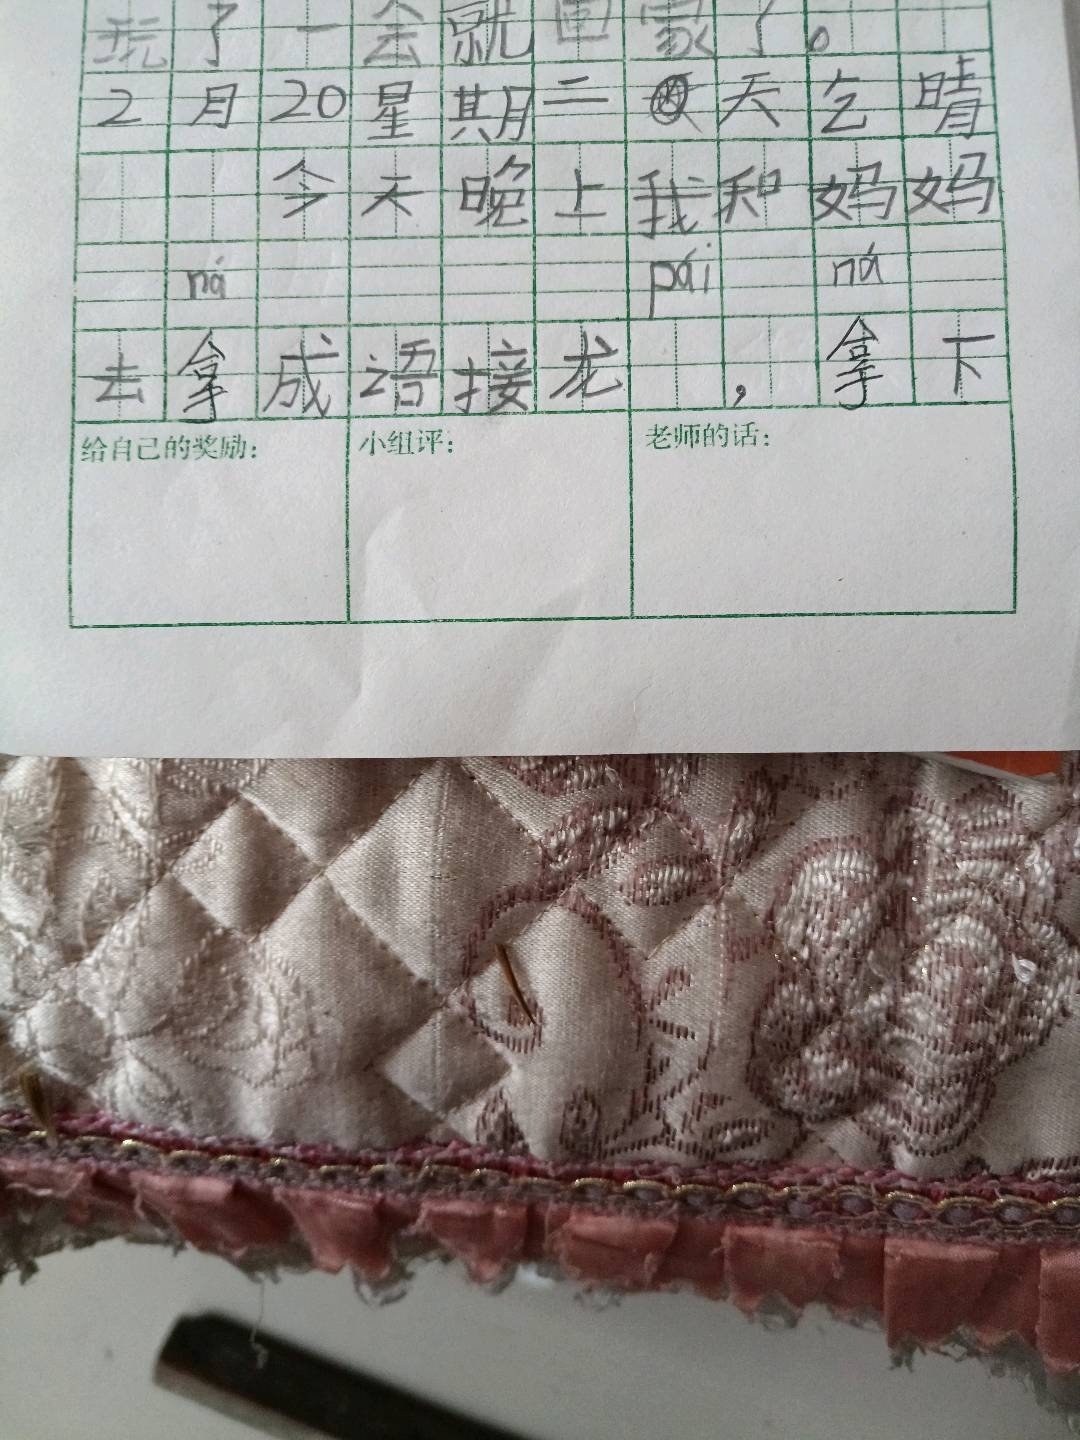 玩了一会就回家了。
2月20星期二天乞晴
今天晚上我和妈妈
ná pái ná
去拿成语接龙,拿下
给自己的奖励: 小组评: 老师的话: